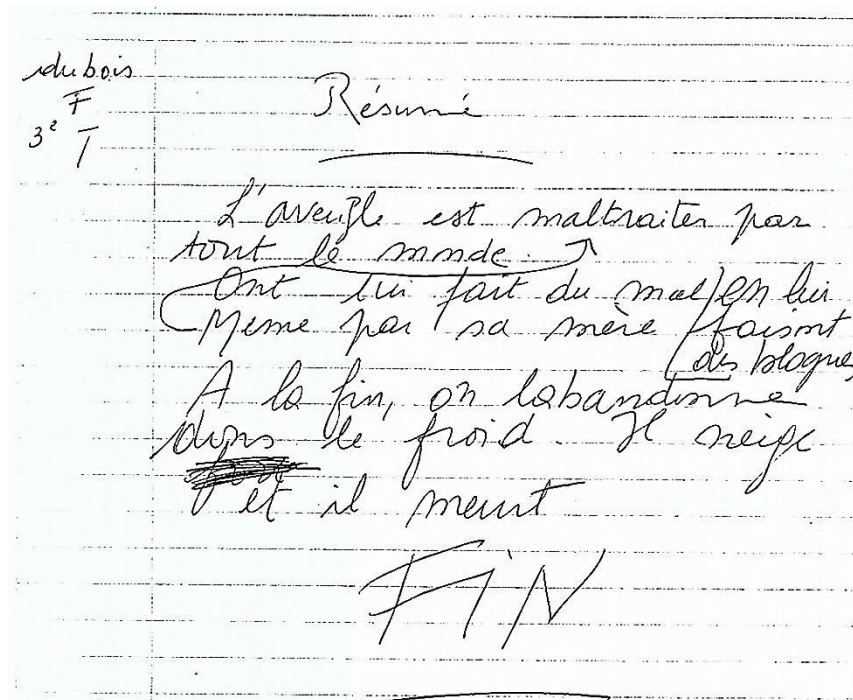 dubois
F
3e
1
Résumé
L'aveugle est maltraiter par
tout le mnde.
Ont lui fait du mal en lui
Meme par sa mère faisant
des blagues
A la fin, on labandonne
dans le froid. Il neige
et il meurt
FIN